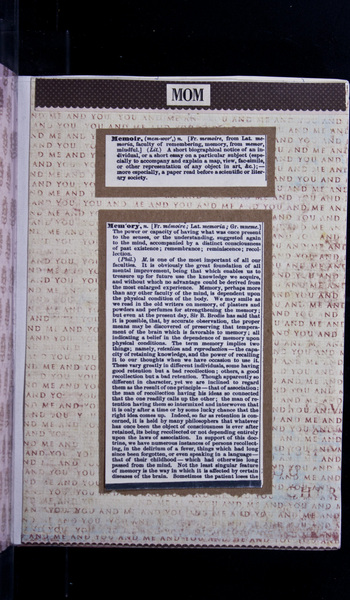 MOM
Memoir, (mem-wor',) n. [Fr. memoire, from Lat. me-
moria, faculty of remembering, memory, from memor,
mindful.] (Lit.) A short biographical notice of an in-
dividual, or a short essay on a particular subject (espe-
cially to accompany and explain a map, view, fac-simile,
or other representation of any object in art, &c.);—
more especially, a paper read before a scientific or liter-
ary society.
Mem'ory, n. [Fr. mémoire; Lat. memoria; Gr. mneme.]
The power or capacity of having what was once present
to the senses, or the understanding, suggested again
to the mind, accompanied by a distinct consciousness
of past existence; remembrance; reminiscence; recol-
lection.
(Phil.) M. is one of the most important of all our
faculties. It is obviously the great foundation of all
mental improvement, being that which enables us to
treasure up for future use the knowledge we acquire,
and without which no advantage could be derived from
the most enlarged experience. Memory, perhaps more
than any other faculty of the mind, is dependent upon
the physical condition of the body. We may smile as
we read in the old writers on memory, of plasters and
powders and perfumes for strengthening the memory;
but even at the present day, Sir B. Brodie has said that
it is possible, that, by accurate observation, the proper
means may be discovered of preserving that tempera-
ment of the brain which is favorable to memory; all
indicating a belief in the dependence of memory upon
physical conditions. The term memory implies two
things; namely, retention and reproduction, the capa-
city of retaining knowledge, and the power of recalling
it to our thoughts when we have occasion to use it.
These vary greatly in different individuals, some having
good retention but a bad recollection; others, a good
recollection but a bad retention. Though apparently so
different in character, yet we are inclined to regard
them as the result of one principle — that of association;
the man of recollection having his ideas so connected
that the one readily calls up the other; the man of re-
tention having them so intermixed and interwoven that
it is only after a time or by some lucky chance that the
right idea comes up. Indeed, so far as retention is con-
cerned, it is held by many philosophers that whatever
has once been the object of consciousness is ever after
retained, its being recollected or not depending entirely
upon the laws of association. In support of this doc-
trine, we have numerous instances of persons recollect-
ing, in the delirium of a fever, things which had long
since been forgotten, or even speaking in a language —
that of their childhood — which had otherwise long
passed from the mind. Not the least singular feature
of memory is the way in which it is affected by certain
diseases of the brain. Sometimes the patient loses the